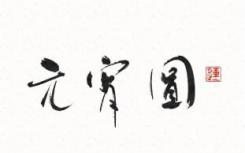 元宵圆